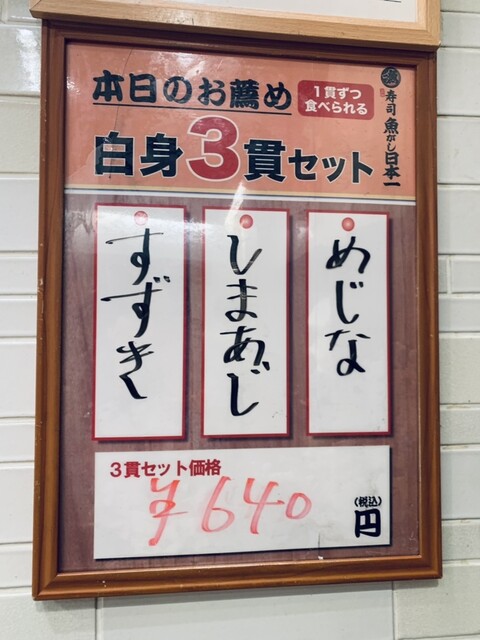 本日のお薦め
1貫ずつ
食べられる
白身3貫セット
寿司 魚がし日本一
めじな
しまあじ
すずき
3貫セット価格
¥640
(税込)
円